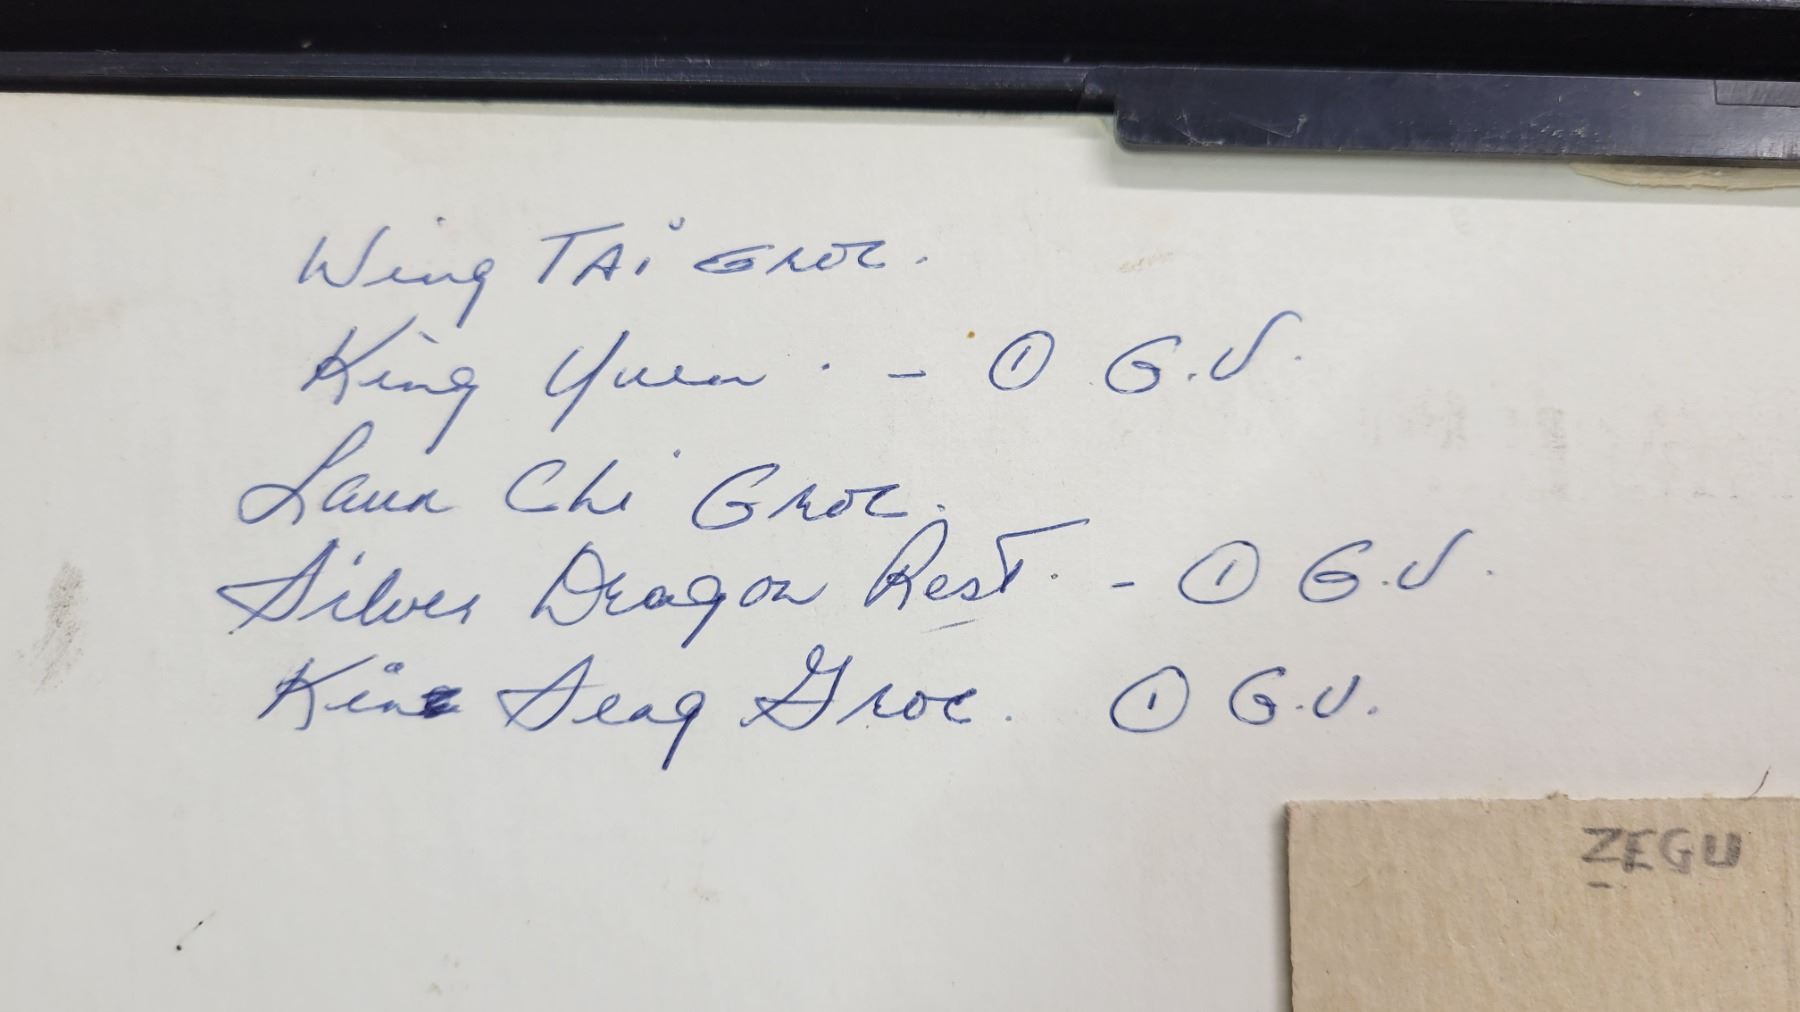 Wing TAi Groc.
King Yuen. - ① G.V.
Laun Chi Groc.
Silver Dragon Rest. - ① G.V.
King Seag Groc. ① G.V.
ZEGU